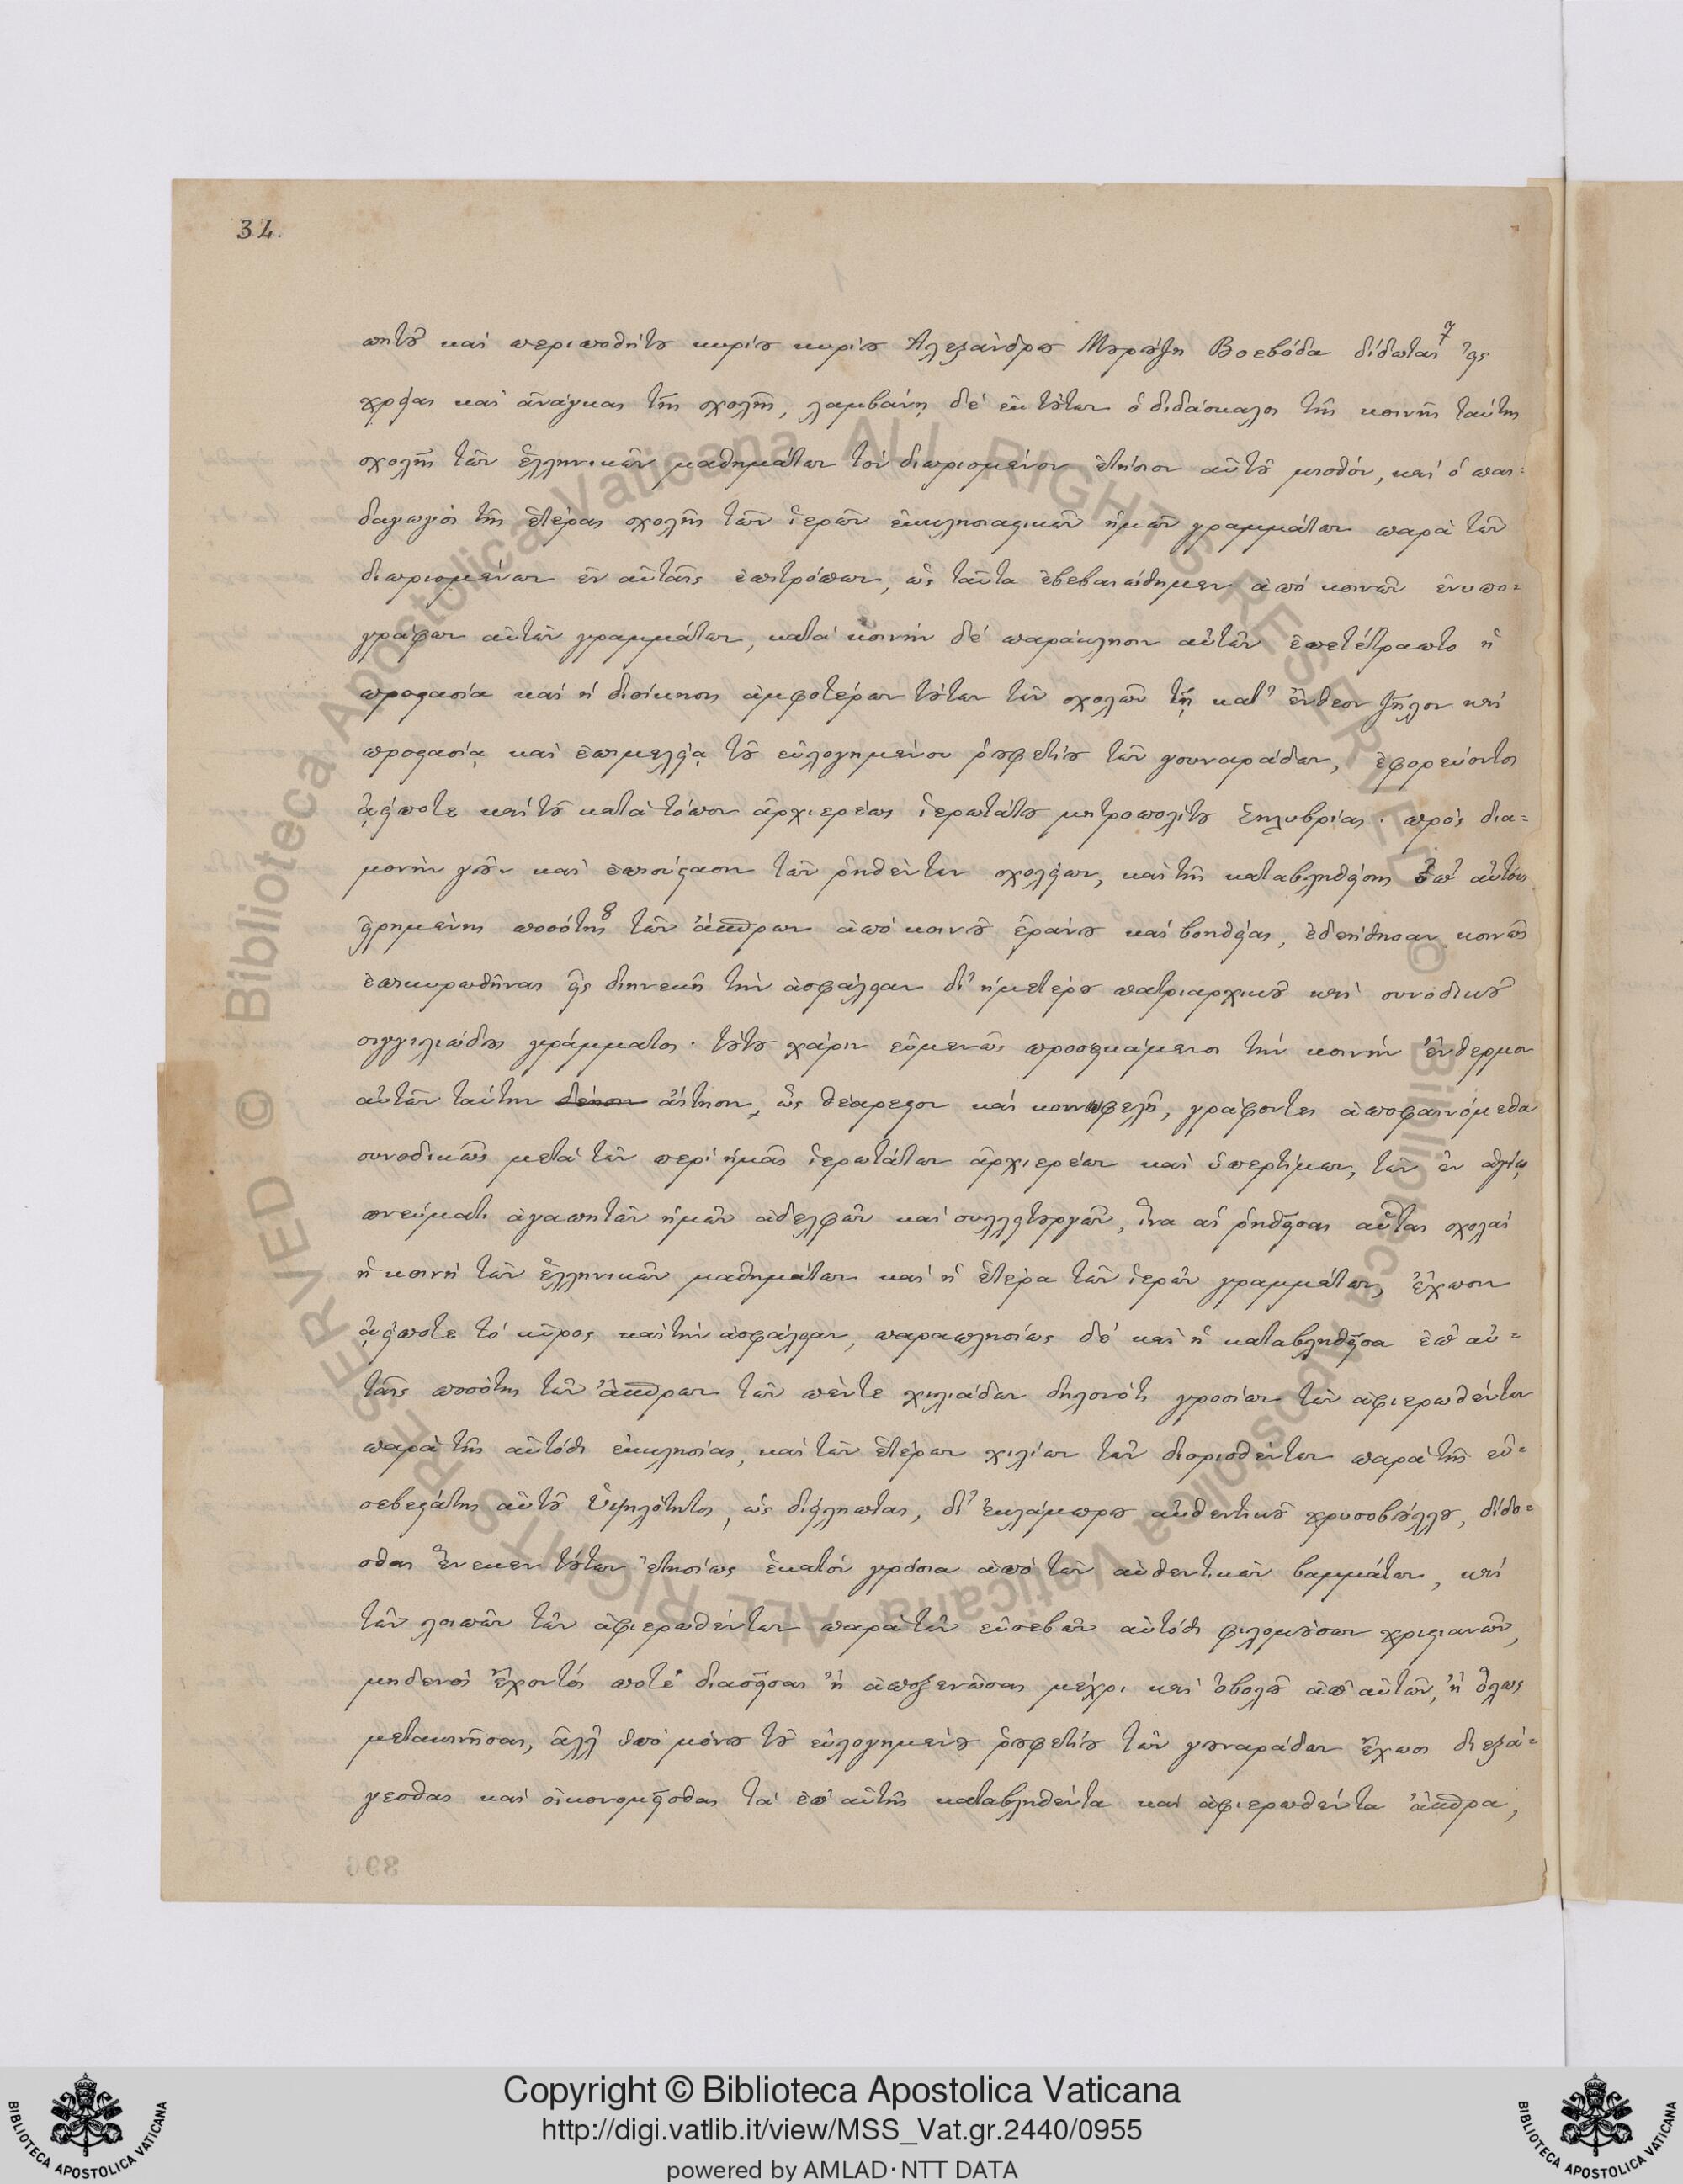 34.
πητοῦ καὶ περιποθήτου κυρίου κυρίου Ἀλεξάνδρου Μουρούζη Βοεβόδα δίδοται⁷ εἰς
χρείας καὶ ἀνάγκας τῆς σχολῆς, λαμβάνῃ δὲ ἐκ τούτων ὁ διδάσκαλος τῆς κοινῆς ταύτης
σχολῆς τῶν ἑλληνικῶν μαθημάτων τὸν διωρισμένον ἐτήσιον αὐτοῦ μισθόν, καὶ ὁ παι=
δαγωγὸς τῆς ἑτέρας σχολῆς τῶν ἱερῶν ἐκκλησιαστικῶν ἡμῶν γραμμάτων παρὰ τῶν
διωρισμένων ἐν αὐταῖς ἐπιτρόπων, ὡς ταῦτα ἐβεβαιώθημεν ἀπὸ κοινῶν ἐνυπο=
γράφων αὐτῶν γραμμάτων, κατὰ κοινὴν δὲ παράκλησιν αὐτῶν ἐπετέτραπτο ἡ
προστασία καὶ ἡ διοίκησις ἀμφοτέρων τούτων τῶν σχολῶν τῇ κατ' ἔνθεον ζῆλον καὶ
προστασίᾳ καὶ ἐπιμελείᾳ τοῦ εὐλογημένου ῥουφετίου τῶν γουναράδων, ἐφορεύοντος
ἀείποτε καὶ τοῦ κατὰ τόπον ἀρχιερέως ἱερωτάτου μητροπολίτου Σηλυβρίας· πρὸς δια=
μονὴν γοῦν καὶ ἐπισύστασιν τῶν ῥηθέντων σχολείων, καὶ τῆς καταβληθείσης ἐπ' αὐτοῖς
εἰρημένης ποσότης⁸ τῶν ἄσπρων ἀπὸ κοινοῦ ἐράνου καὶ βοηθείας, ἐδεήθησαν κοινῶς
ἐπικυρωθῆναι εἰς διηνεκῆ τὴν ἀσφάλειαν δι' ἡμετέρου πατριαρχικοῦ καὶ συνοδικοῦ
σιγγιλιώδους γράμματος· τούτου χάριν εὐμενῶς προσηκάμενοι τὴν κοινὴν ἔνθερμον
αὐτῶν ταύτην δέησιν αἴτησιν, ὡς θεάρεστον καὶ κοινωφελῆ, γράφοντες ἀποφαινόμεθα
συνοδικῶς μετὰ τῶν περὶ ἡμᾶς ἱερωτάτων ἀρχιερέων καὶ ὑπερτίμων, τῶν ἐν ἁγίῳ
πνεύματι ἀγαπητῶν ἡμῶν ἀδελφῶν καὶ συλλειτουργῶν, ἵνα αἱ ῥηθεῖσαι αὗται σχολαὶ
ἡ κοινὴ τῶν ἑλληνικῶν μαθημάτων καὶ ἡ ἑτέρα τῶν ἱερῶν γραμμάτων, ἔχωσιν
ἀείποτε τὸ κῦρος καὶ τὴν ἀσφάλειαν, παραπλησίως δὲ καὶ ἡ καταβληθεῖσα ἐπ' αὐ=
ταῖς ποσότης τῶν ἄσπρων τῶν πέντε χιλιάδων δηλονότι γροσίων τῶν ἀφιερωθέντων
παρὰ τῆς αὐτόθι ἐκκλησίας, καὶ τῶν ἑτέρων χιλίων τῶν διορισθέντων παρὰ τῆς εὐ=
σεβεστάτης αὐτοῦ Ὑψηλότητος, ὡς διείληπται, δι' ἐκλάμπρου αὐθεντικοῦ χρυσοβούλλου, δίδο=
σθαι ἕνεκεν τούτων ἐτησίως ἑκατὸν γρόσια ἀπὸ τῶν αὐθεντικῶν βαμμάτων, καὶ
τῶν λοιπῶν τῶν ἀφιερωθέντων παρὰ τῶν εὐσεβῶν αὐτόθι φιλομούσων χριστιανῶν,
μηδενὸς ἔχοντός ποτε διασεῖσαι ἢ ἀποξενῶσαι μέχρι καὶ ὀβολοῦ ἀπ' αὐτῶν, ἢ ὅλως
μετακινῆσαι, ἀλλ' ὑπὸ μόνου τοῦ εὐλογημένου ῥουφετίου τῶν γουναράδων ἔχωσι διεξά=
γεσθαι καὶ οἰκονομεῖσθαι τὰ ἐπ' αὐτῆς καταβληθέντα καὶ ἀφιερωθέντα ἄσπρα,
Copyright © Biblioteca Apostolica Vaticana
http://digi.vatlib.it/view/MSS_Vat.gr.2440/0955
powered by AMLAD·NTT DATA
BIBLIOTECA APOSTOLICA VATICANA
BIBLIOTECA APOSTOLICA VATICANA
© Biblioteca Apostolica Vaticana ALL RIGHTS RESERVED
© Biblioteca Apostolica Vaticana ALL RIGHTS RESERVED